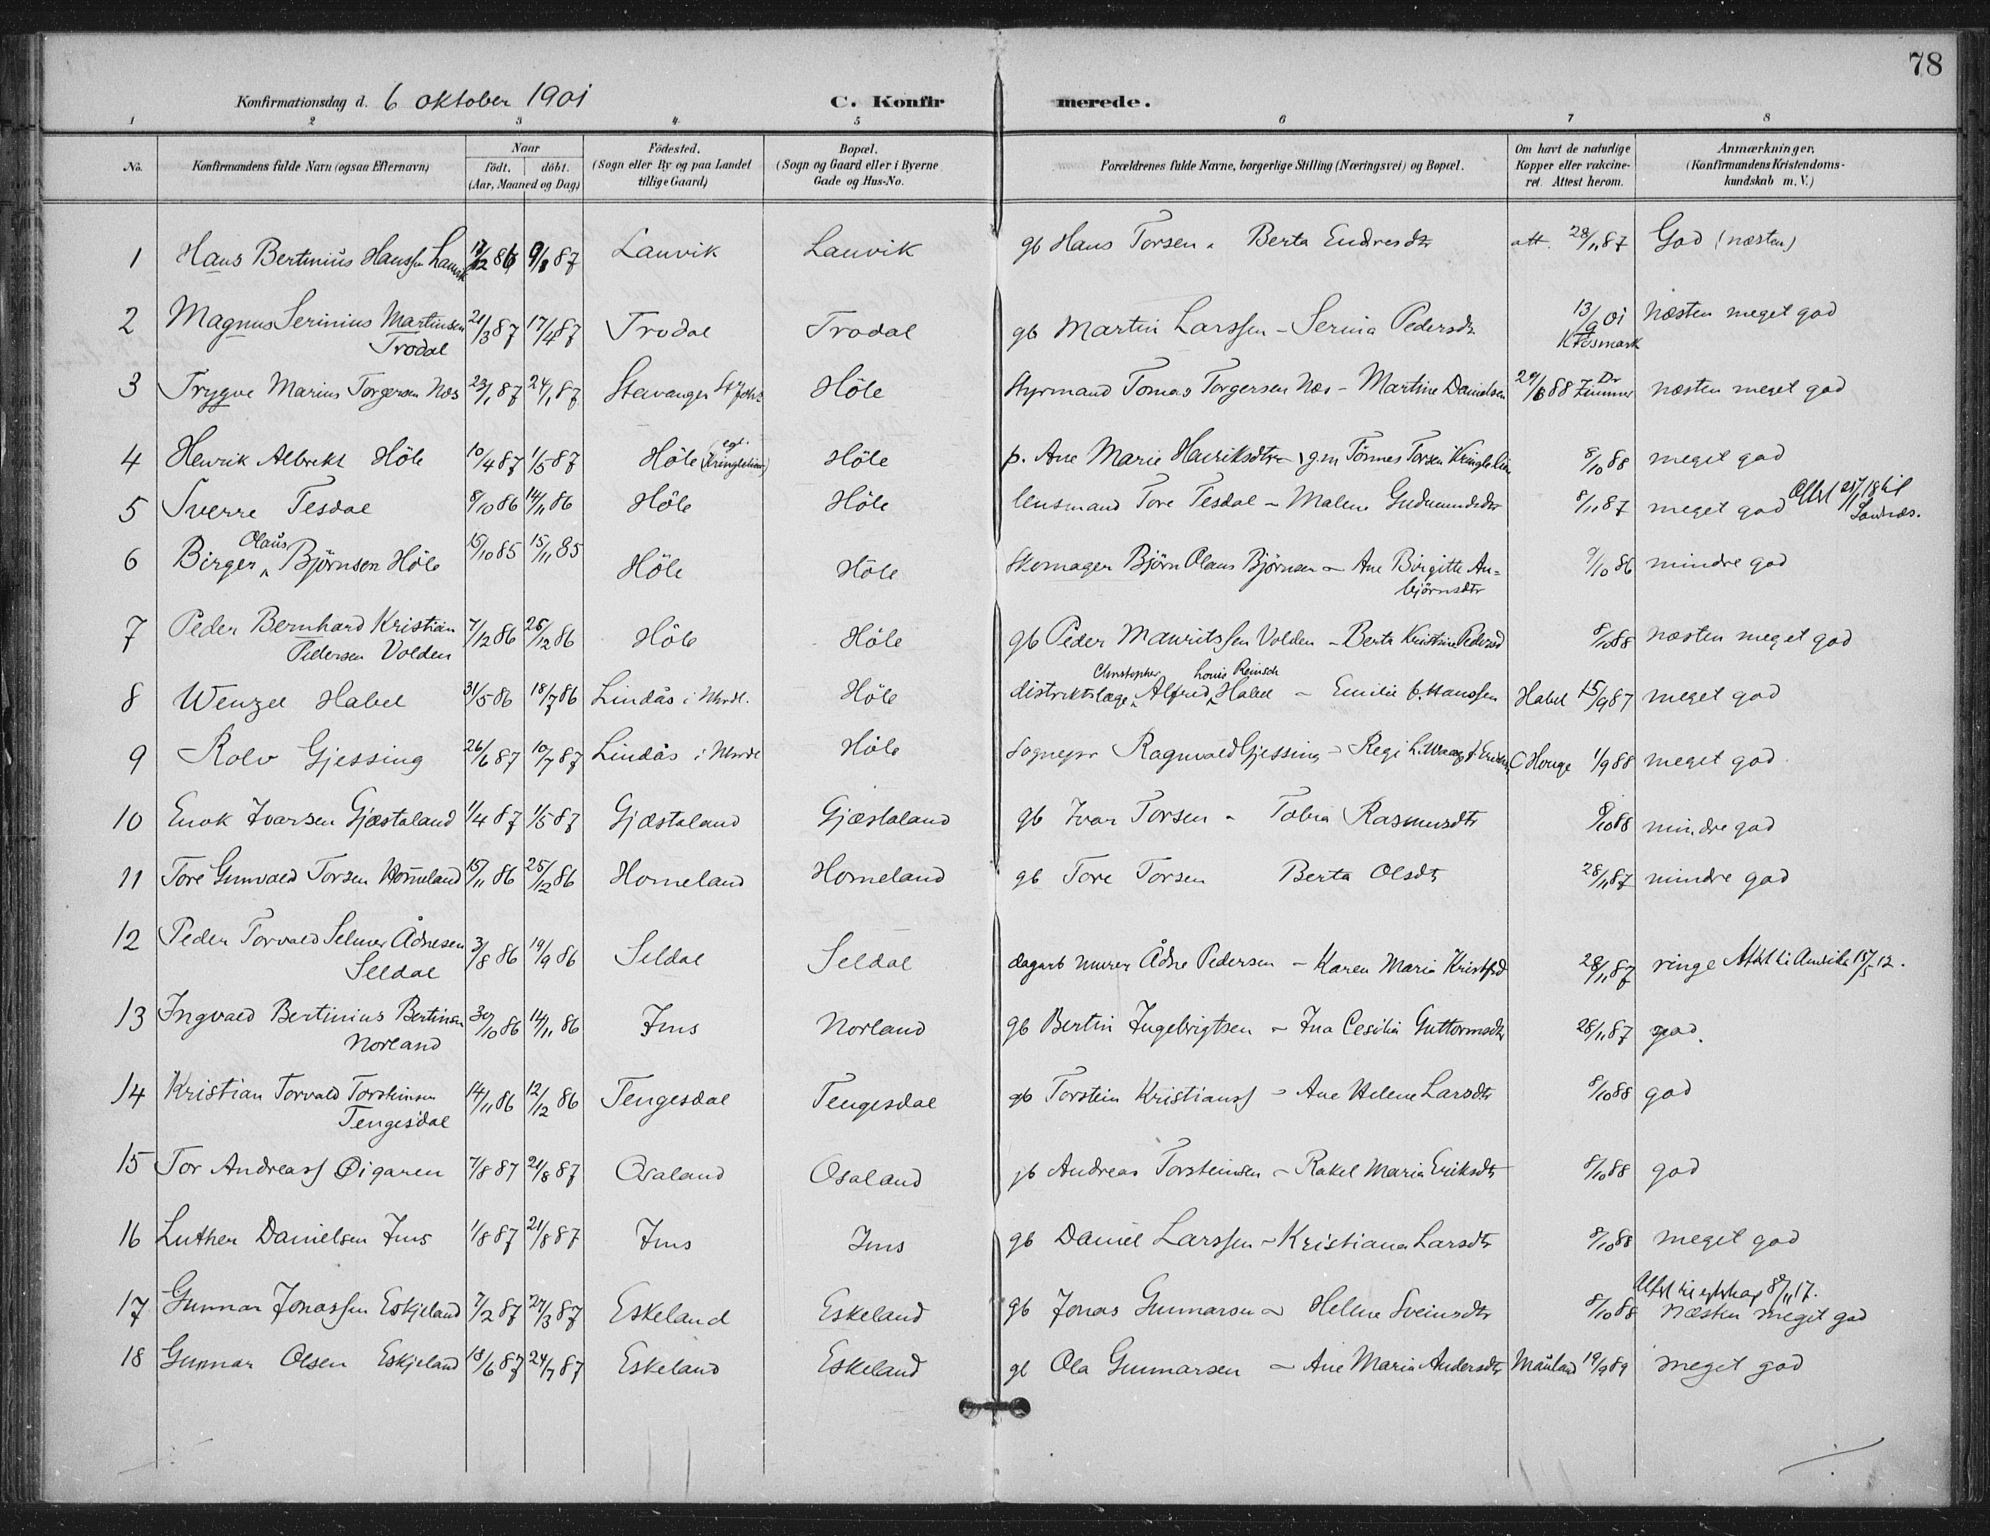 78
Konfirmationsdag d. 6 oktober 1901 C. Konfirmerede.
1 2 3 4 5 6 7 8
No. Konfirmandens fulde Navn (ogsaa Efternavn) Naar født. døbt. (Aar, Maaned og Dag) Fødested. (Sogn eller By og paa Landet tillige Gaard) Bopæl. (Sogn og Gaard eller i Byerne Gade og Hus-No. Forældrenes fulde Navne, borgerlige Stilling (Næringsvei) og Bopæl. Om havt de naturlige Kopper eller vakcineret. Attest herom. Anmærkninger. (Konfirmandens Kristendomskundskab m. V.)
1 Hans Bertinius Hanssen Lauvik 17/12 86 9/1 87 Lauvik Lauvik gb Hans Torsen - Berta Endresdtr att. 28/11 87 God (næsten)
2 Magnus Serinius Martinsen 21/3 87 17/4 87 Trodal Trodal gb Martin Larssen - Serina Pedersdtr 13/9 01 Næsten meget god
Trodal
3 Trygve Marius Torgersen Næs 23/1 87 24/1 87 Stavanger St Joh. Høle Styrmand Tomas Torgersen Næs - Martine Danielsen 29/6 88 Dr Zimmer næsten meget god
4 Henrik Albrekt Høle 10/4 87 1/5 87 Høle (egl. Kringlelien) Høle p. Ane Marie Henriksdtr - gm Tönnes Torsen Kringlelien 8/10 88 meget god
5 Sverre Tesdal 8/10 86 14/11 86 Høle Høle lensmand Tore Tesdal - Malene Gudmundsdtr 8/11 87 meget god Attst 25/11 18 til Sandnæs.
6 Birger Olaus Bjørnsen Høle 15/10 85 15/11 85 Høle Høle Skomager Bjørn Olaus Bjørnsen - Ane Birgitte An=
bjørnsdtr 9/10 86 mindre god
7 Peder Bernhard Kristian 7/12 86 26/12 86 Høle Høle gb Peder Mauritssen Volden - Berta Kristine Pedersd 8/10 88 næsten meget god
Pedersen Volden
8 Wenzel Habel 31/5 86 18/7 86 Lindås i Nhrdl. Høle distriktslæge Christopher Alfred Louis Reinsch Habel - Emilie f. Hanssen Habel 15/9 87 meget god
9 Rolv Gjessing 26/6 87 10/7 87 Lindås i Nhrdl Høle Sognepr Ragnvald Gjessing - Regi L. C Houge 1/9 88 meget god
10 Enok Ivarsen Gjæstaland 1/4 87 1/5 87 Gjæstaland Gjæstaland gb Ivar Torsen - Tobia Rasmusdtr 8/10 88 mindre god
11 Tore Gunvald Torsen Homeland 15/11 86 25/12 86 Homeland Homeland gb Tore Torsen Berta Olsdtr 28/11 87 mindre god
12 Peder Torvald Selmer Ådnesen 3/8 86 19/9 86 Seldal Seldal dagarb murer Ådne Pedersen - Karen Maria Kristfd 28/11 87 ringe Attst til Amrika 15/5 12.
Seldal
13 Ingvald Bertinius Bertinsen 30/10 86 14/11 86 Ims Norland gb Bertin Ingebrigtsen - Ina Cesilia Guttormsdtr 28/11 87 god.
Norland
14 Kristian Torvald Torsteinsen 14/11 86 12/12 86 Tengesdal Tengesdal gb Torstein Kristianss - Ane Helene Larsdtr 8/10 88 god
Tengesdal
15 Tor Andreass Øigaren 7/8 87 21/8 87 Osaland Osaland gb Andreas Torsteinsen - Rakel Maria Eriksdtr 8/10 88 god
16 Luther Danielsen Ims 1/8 87 21/8 87 Ims Ims gb Daniel Larssen - Kristiana Larsdtr 8/10 88 meget god
17 Gunnar Jonassen Eskjeland 7/2 87 27/3 87 Eskeland Eskeland gb Jonas Gunnarsen - Helene Sveinsdtr 8/10 88 Attst til egtskap 8/11 17. Næsten meget god
18 Gunnar Olsen Eskjeland 18/6 87 24/7 87 Eskeland Eskeland gb Ola Gunnarsen - Ane Maria Andersdtr Mauland 19/9 89 meget god